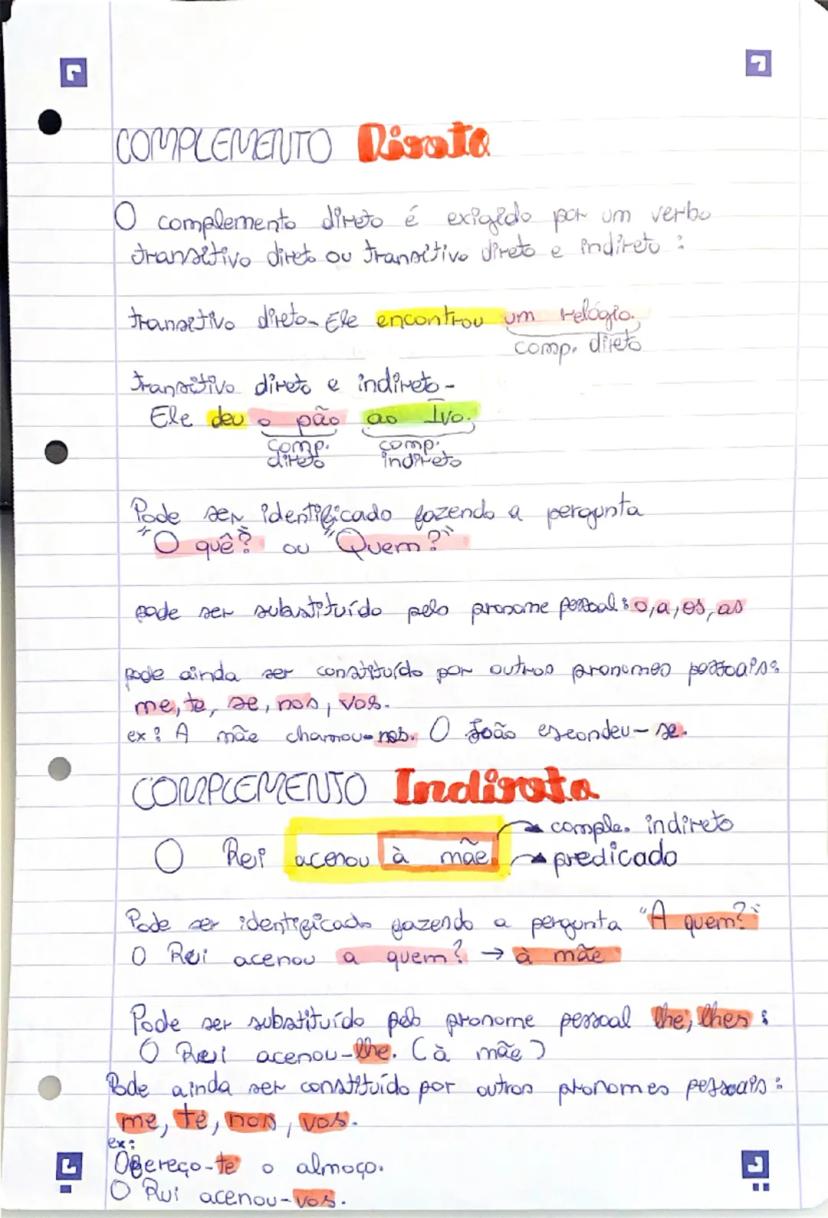 COMPLEMENTO Direto
O complemento direto é exigido por um verbo
transitivo direto ou transitivo direto e indireto :
transitivo direto- Ele encontrou um relógio.
comp. direto
transitivo direto e indireto-
Ele deu o pão ao Ivo.
comp. direto comp. indireto
Pode ser identificado fazendo a pergunta
"O quê?" ou "Quem?"
pode ser substituído pelo pronome pessoal: o, a, os, as
pode ainda ser constituído por outros pronomes pessoais:
me, te, se, nos, vos.
ex: A mãe chamou-nos. O João escondeu-se.
COMPLEMENTO Indireto
comple. indireto
O Rui acenou à mãe. predicado
Pode ser identificado fazendo a pergunta "A quem?"
O Rui acenou a quem? → à mãe
Pode ser substituído pelo pronome pessoal lhe, lhes :
O Rui acenou-lhe. (à mãe)
Pode ainda ser constituído por outros pronomes pessoais :
me, te, nos, vos.
ex:
Ofereço-te o almoço.
O Rui acenou-vos.